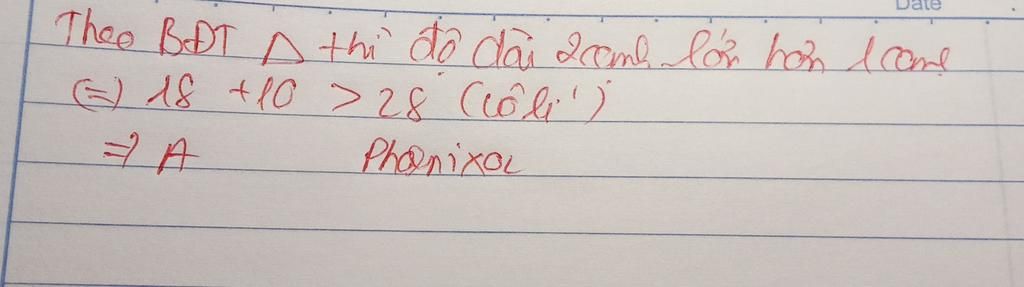 Date
Theo BĐT Δ thì độ dài 2 cạnh lớn hơn 1 cạnh
(=) 18 + 10 > 28 (vô lí)
=> A Phoenixac